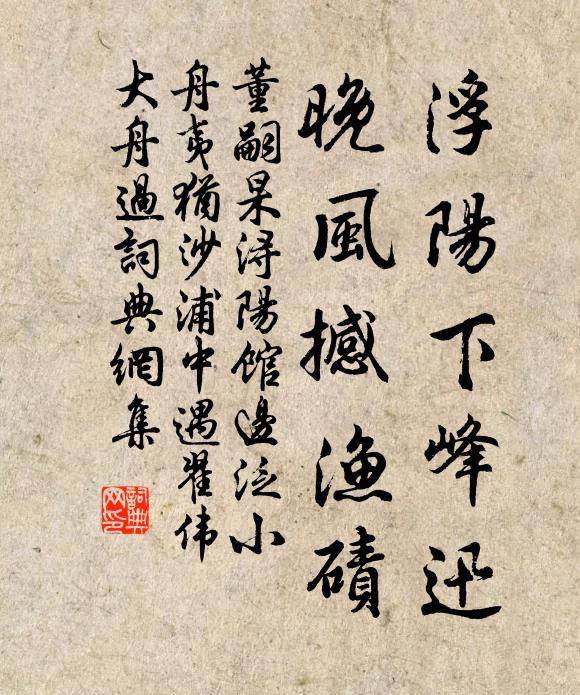 浮陽下峰迅
晚風撼漁磧
董嗣杲浔陽馆邊泛小
舟夷猶沙浦中遇翟伟
大舟過詞典網集
詞典
网印